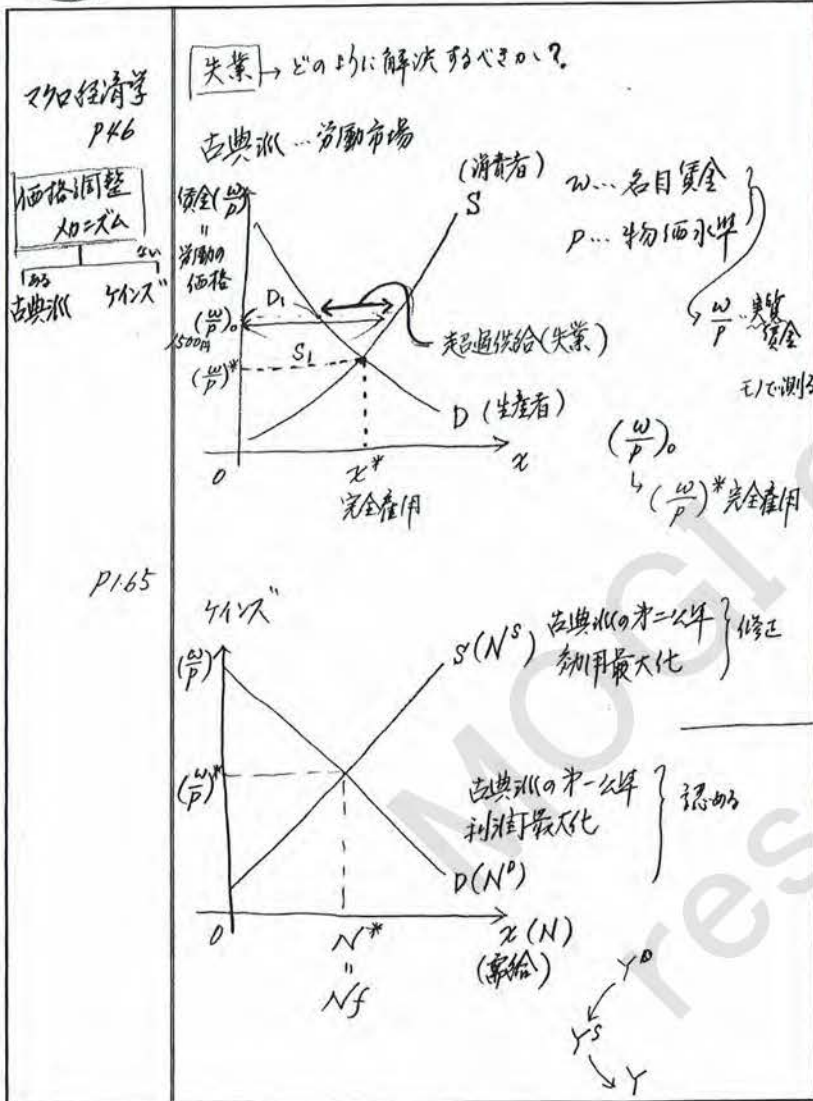 マクロ経済学
P46
価格調整
メカニズム
ある
ない
古典派
ケインズ
失業 → どのように解決するべきか?
古典派…労働市場
賃金(w/p)
=
労働の
価格
(w/p)₀
1500円
(w/p)*
D₁
S₁
(消費者)
S
超過供給(失業)
D (生産者)
0
x*
x
完全雇用
w…名目賃金
P…物価水準
w/p…実質
賃金
モノで測る
(w/p)₀
↳ (w/p)* 完全雇用
P165
ケインズ
(w/p)
(w/p)*
S(Nˢ)
古典派の第二公準
効用最大化
修正
古典派の第一公準
利潤最大化
認める
D(Nᴰ)
0
N*
=
Nf
x(N)
(需給)
Yᴰ
Yˢ
Y
MOGI
res